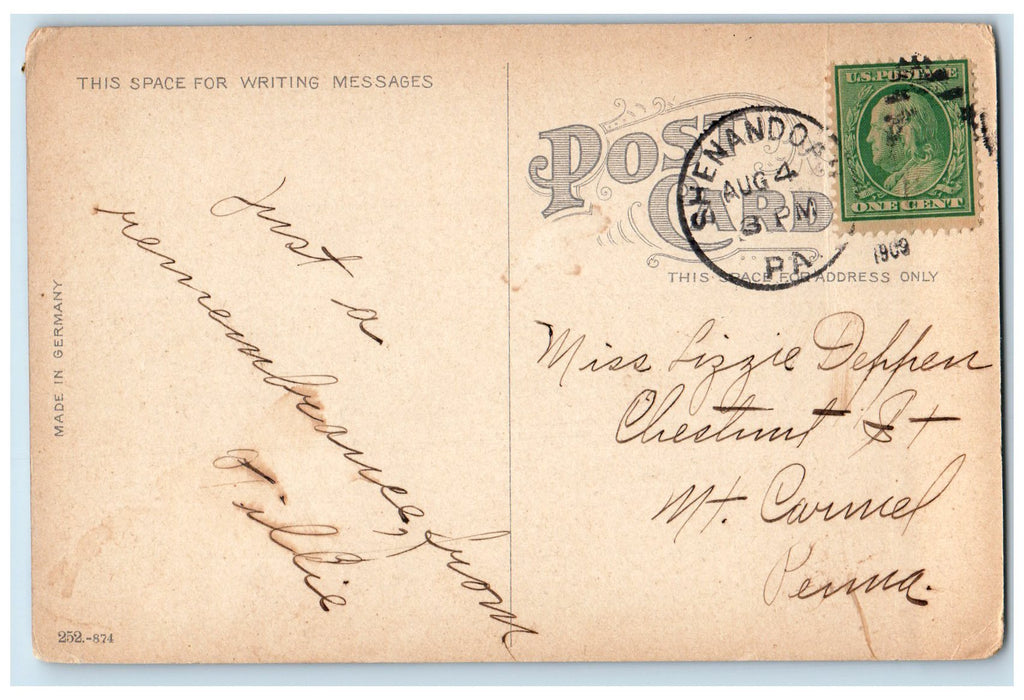 THIS SPACE FOR WRITING MESSAGES
Just a
remembrance, from
Tillie
MADE IN GERMANY
252.-874
POST
CARD
THIS SPACE FOR ADDRESS ONLY
SHENANDOAH
AUG 4
3 PM
PA
1909
U.S. POSTAGE
ONE CENT
Miss Lizzie Deppen
Chestnut St
Mt. Carmel
Penna.